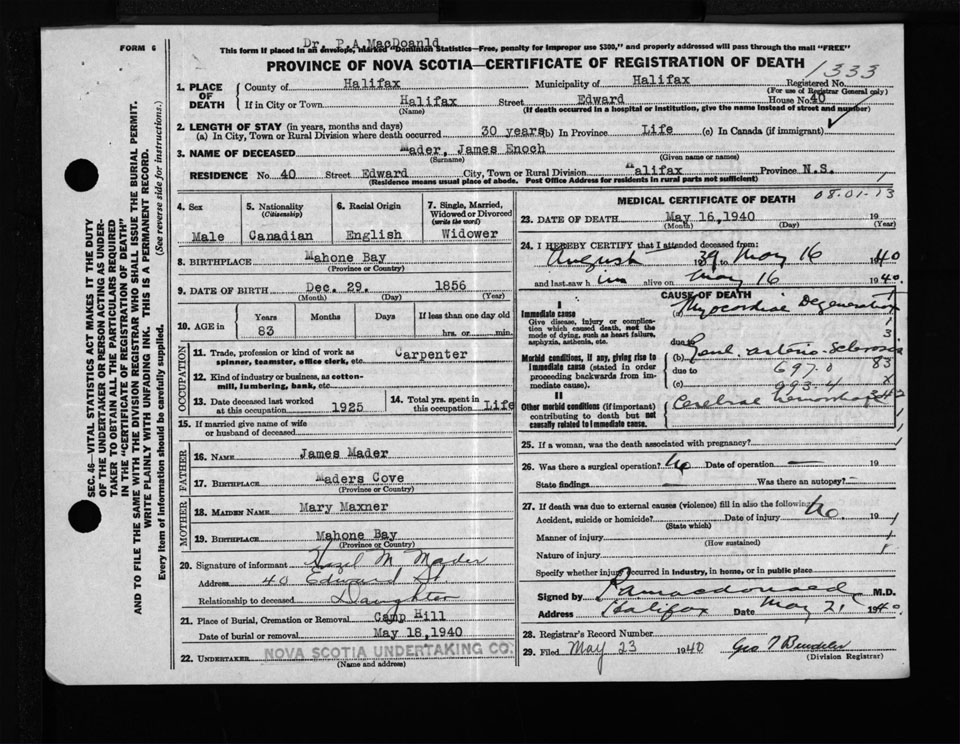 FORM 6
Dr. P.A.MacDoanld
This form if placed in an envelope, marked "Dominion Statistics—Free, penalty for improper use $300," and properly addressed will pass through the mail "FREE"
PROVINCE OF NOVA SCOTIA—CERTIFICATE OF REGISTRATION OF DEATH
1333
1. PLACE OF DEATH
County of Halifax Municipality of Halifax Registered No.
(For use of Registrar General only)
If in City or Town Halifax Street Edward House No. 40
(Name) (If death occurred in a hospital or institution, give the name instead of street and number)
2. LENGTH OF STAY (in years, months and days)
(a) In City, Town or Rural Division where death occurred 30 years (b) In Province Life (c) In Canada (if immigrant)
3. NAME OF DECEASED Mader, James Enoch
(Surname) (Given name or names)
RESIDENCE No. 40 Street Edward City, Town or Rural Division Halifax Province N.S.
(Residence means usual place of abode. Post Office Address for residents in rural parts not sufficient)
4. Sex
Male
5. Nationality
(Citizenship)
Canadian
6. Racial Origin
English
7. Single, Married, Widowed or Divorced
(write the word)
Widower
8. BIRTHPLACE Mahone Bay
(Province or Country)
9. DATE OF BIRTH Dec. 29. 1856
(Month) (Day) (Year)
10. AGE in
Years Months Days If less than one day old
83 hrs. or min.
OCCUPATION
11. Trade, profession or kind of work as spinner, teamster, office clerk, etc. Carpenter
12. Kind of industry or business, as cotton-mill, lumbering, bank, etc.
13. Date deceased last worked at this occupation 1925
14. Total yrs. spent in this occupation Life
15. If married give name of wife or husband of deceased
FATHER
16. NAME James Mader
17. BIRTHPLACE Maders Cove
(Province or Country)
MOTHER
18. MAIDEN NAME Mary Maxner
19. BIRTHPLACE Mahone Bay
(Province or Country)
20. Signature of informant Hazel M Mader
Address 40 Edward St
Relationship to deceased Daughter
21. Place of Burial, Cremation or Removal Camp Hill
Date of burial or removal May 18,1940
22. UNDERTAKER NOVA SCOTIA UNDERTAKING CO.
(Name and address)
MEDICAL CERTIFICATE OF DEATH
08-01-13
23. DATE OF DEATH May 16,1940 19
(Month) (Day) (Year)
24. I HEREBY CERTIFY that I attended deceased from:
August 1939 to May 16 1940
and last saw him alive on May 16 1940.
CAUSE OF DEATH
I
Immediate cause
Give disease, injury or complication which caused death, not the mode of dying, such as heart failure, asphyxia, asthenia, etc.
(a) Myocardial Degeneration
due to
Morbid conditions, if any, giving rise to immediate cause (stated in order proceeding backwards from immediate cause).
(b) arterio-Sclerosis
due to 697.0 83
(c) 993.4
II
Other morbid conditions (if important) contributing to death but not causally related to immediate cause.
Cerebral hemorrhage
25. If a woman, was the death associated with pregnancy?
26. Was there a surgical operation? No Date of operation — 19
State findings — Was there an autopsy? —
27. If death was due to external causes (violence) fill in also the following: No.
Accident, suicide or homicide? Date of injury 19
(State which)
Manner of injury
(How sustained)
Nature of injury
Specify whether injury occurred in industry, in home, or in public place
Signed by P.A. Macdonald M.D.
Address Halifax Date May 21 1940.
28. Registrar's Record Number
29. Filed May 23 1940
(Division Registrar)
SEC. 46—VITAL STATISTICS ACT MAKES IT THE DUTY
OF THE UNDERTAKER OR PERSON ACTING AS UNDER-
TAKER TO OBTAIN ALL THE PARTICULARS REQUIRED
IN THE "CERTIFICATE OF REGISTRATION OF DEATH"
AND TO FILE THE SAME WITH THE DIVISION REGISTRAR WHO SHALL ISSUE THE BURIAL PERMIT.
WRITE PLAINLY WITH UNFADING INK. THIS IS A PERMANENT RECORD.
Every item of information should be carefully supplied. (See reverse side for instructions.)